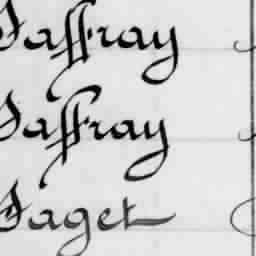 Jaffray
Jaffray
Jaget